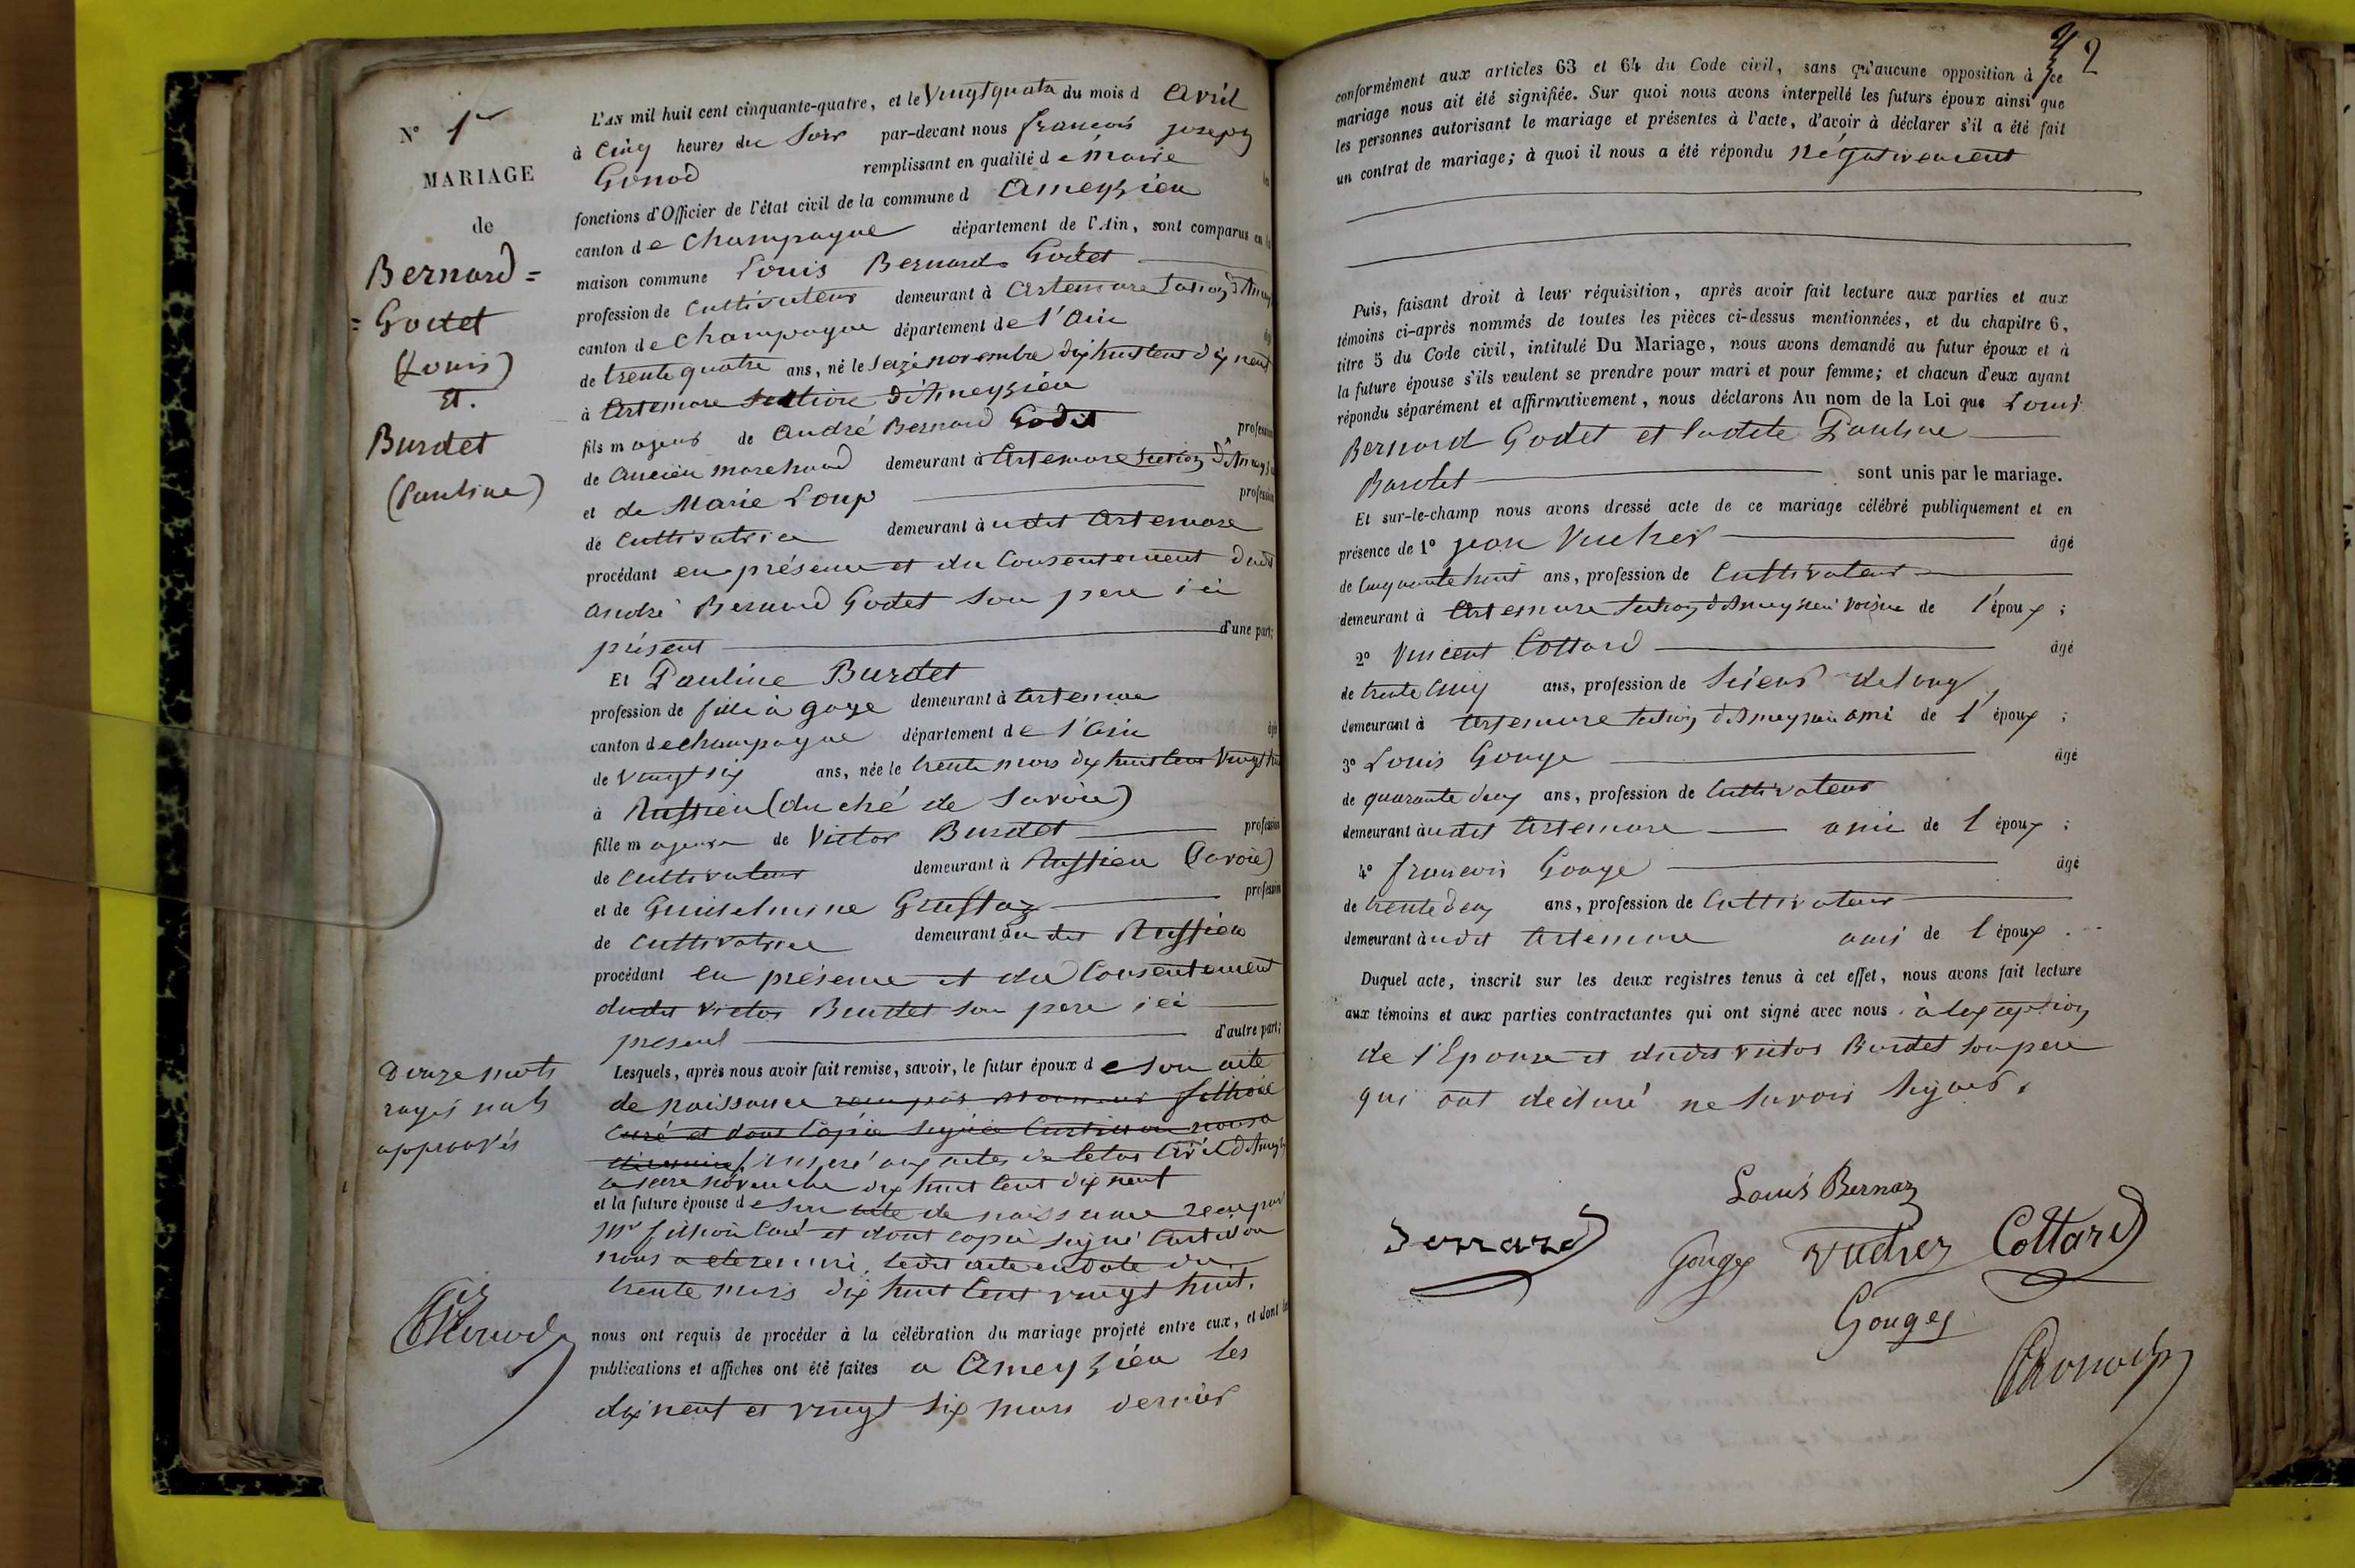 N° 1er
MARIAGE
de
Bernard =
= Godet
(Louis)
Et.
Burdet
(Pauline)
L'AN mil huit cent cinquante-quatre, et le Vingt quatre du mois d Avril
à Cinq heures du Soir par-devant nous françois joseph
Gonod remplissant en qualité de Maire
fonctions d'Officier de l'état civil de la commune d Ameyzieu
canton de Champagne département de l'Ain, sont comparus en la
maison commune Louis Bernard Godet
profession de Cultivateur demeurant à Artemare Section d'Amey
canton de champagne département de l'Ain
de trente quatre ans, né le Seize novembre dix huit cent dix neuf
à Artemare Section d'Ameyzieu
fils majeur de André Bernard Godet profession
de Ancien marchand demeurant à Artemare Section d'Ameyz
et de Marie Loup profession
de Cultivatrice demeurant audit Artemare
procédant en présence et du Consentement dudit
André Bernard Godet son pere ici
présent d'une part;
Et Pauline Burdet
profession de fille à gage demeurant à Artemare
canton de champagne département de l'Ain
de vingt six ans, née le trente mars dix huit cent vingt huit
à Ruffieu (duché de Savoie)
fille majeure de Victor Burdet profession
de Cultivateur demeurant à Ruffieu (Savoie)
et de Guillelmine profession
de Cultivatrice demeurant audit Ruffieu
procédant en présence et du Consentement
dudit Victor Burdet son pere ici
présent d'autre part;
Lesquels, après nous avoir fait remise, savoir, le futur époux de son acte
de naissance
curé et dont Copie signée Curtillon nous a
inseré aux actes de letat Civil d'Ameyz
le seize novembre dix huit cent dix neuf
et la future épouse de son acte de naissance reçu par
Mr curé et dont copie signé Curtillon
nous a eté remi, ledit acte en date du
trente mars dix huit cent vingt huit.
nous ont requis de procéder à la célébration du mariage projeté entre eux, et dont les
publications et affiches ont été faites a Ameyzieu les
dix neuf et vingt six mars dernier
Douze mots
rayés nuls
approuvés
42
conformément aux articles 63 et 64 du Code civil, sans qu'aucune opposition à ce
mariage nous ait été signifiée. Sur quoi nous avons interpellé les futurs époux ainsi que
les personnes autorisant le mariage et présentes à l'acte, d'avoir à déclarer s'il a été fait
un contrat de mariage; à quoi il nous a été répondu négativement
Puis, faisant droit à leur réquisition, après avoir fait lecture aux parties et aux
témoins ci-après nommés de toutes les pièces ci-dessus mentionnées, et du chapitre 6,
titre 5 du Code civil, intitulé Du Mariage, nous avons demandé au futur époux et à
la future épouse s'ils veulent se prendre pour mari et pour femme; et chacun d'eux ayant
répondu séparément et affirmativement, nous déclarons Au nom de la Loi que Louis
Bernard Godet et ladite Pauline
Burdet sont unis par le mariage.
Et sur-le-champ nous avons dressé acte de ce mariage célébré publiquement et en
présence de 1° jean Vucher âgé
de cinquante huit ans, profession de Cultivateur
demeurant à Artemare Section d'Ameyzieu voisin de l'époux ;
2° Vincent Cottard âgé
de trente cinq ans, profession de Scieur de long,
demeurant à Artemare Section d'Ameyzieu ami de l'époux ;
3° Louis Gouge âgé
de quarante deux ans, profession de Cultivateur
demeurant audit Artemare ami de l'époux ;
4° françois Gouge âgé
de trente deux ans, profession de Cultivateur
demeurant audit Artemare ami de l'époux .
Duquel acte, inscrit sur les deux registres tenus à cet effet, nous avons fait lecture
aux témoins et aux parties contractantes qui ont signé avec nous . à lexception
de l'Epouse et dudit victor Burdet son pere
qui ont declaré ne savoir signer.
Louis Bernar
Bernard Gouge Vucher Cottard
Gouges